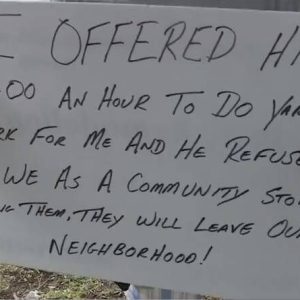 OFFERED
00 AN HOUR TO DO
FOR ME AND HE REFUSE
WE AS A COMMUNITY STO
THEM, THEY WILL LEAVE OU
NEIGHBORHOOD!